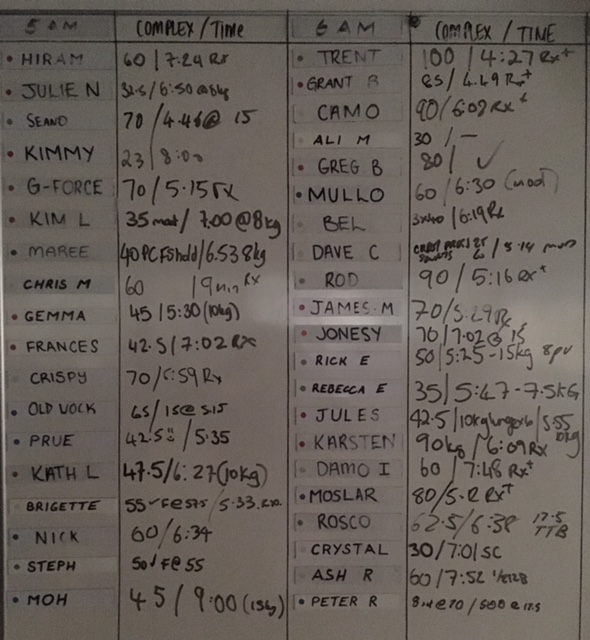 5 AM COMPLEX / Time
HIRAM 60 / 7:29 Rx
JULIE N 32.5 / 6:50 @8kg
SEANO 70 / 4.46@ 15
KIMMY 23 / 8:00
G-FORCE 70 / 5.15 rx
KIM L 35 mod / 7.00 @8kg
MAREE 40 PC FShdd / 6.53 8kg
CHRIS M 60 / 9min Rx
GEMMA 45 / 5:30 (10kg)
FRANCES 42.5 / 7:02 Rx
CRISPY 70 / 6:59 Rx
OLD VOCK 65 / 15@ 5.15
PRUE 42.5 / 5.35
KATH L 47.5 / 6:27 (10kg)
BRIGETTE 55 ✓ F@57.5 / 5.33
NICK 60 / 6:34
STEPH 50 / F@ 55
MOH 45 / 9:00 (15kg)
6 AM COMPLEX / TIME
TRENT 100 / 4:27 Rx+
GRANT B 85 / 4.49 Rx+
CAMO 90 / 6:08 Rx+
ALI M 30 / —
GREG B 80 / ✓
MULLO 60 / 6:30 (mod)
BEL 3x40 / 6:19 Rx
DAVE C / 5:14 mod
ROD 90 / 5:16 Rx+
JAMES M 70 / 5.29 Rx
JONESY 70 / 7.02 @ 15
RICK E 50 / 5:25 - 15kg 8pu
REBECCA E 35 / 5:47 - 7.5KG
JULES 42.5 / 10kg lunges / 5.55 10kg
KARSTEN 90kg / 6:09 Rx
DAMO I 60 / 7:48 Rx+
MOSLAR 80 / 5.2 Rx+
ROSCO 62.5 / 6:38 17.5 TTB
CRYSTAL 30 / 7:01 SC
ASH R 60 / 7:52
PETER R @ 70 / 500 @ 17.5